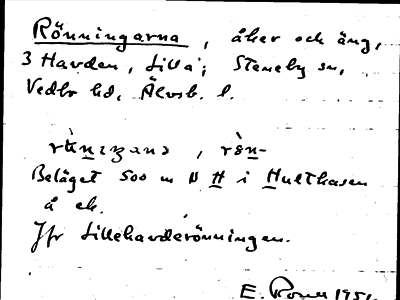 Rönningarna, åker och äng,
3 Harden, Lilla; Steneby sn,
Vedbo hd, Älvsb. l.
Beläget 500 m N H i Hulthasen
å ek.
Jfr Lilleharderönningen.
E. 1951